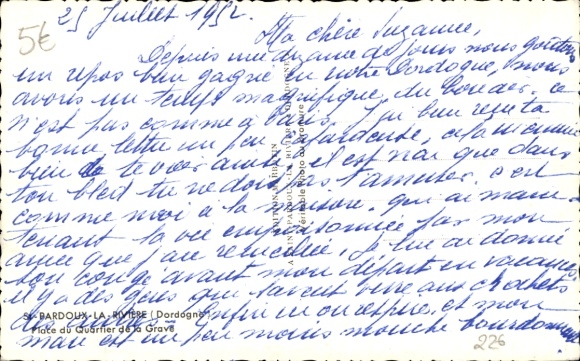 5€
25 Juillet 1952.
Ma chère Suzanne,
Depuis une dizaine de jours nous goûtons
un repos bien gagné en notre Dordogne, nous
avons un temps magnifique, du bonheur. ce
n'est pas comme à Paris. J'ai bien reçu ta
bonne lettre un peu cela m'ennuie
bien de te voir ainsi et c'est vrai que dans
ton bled tu ne dois pas t'amuser, c'est
comme moi à la maison. qui ai main-
tenant la vie empoisonnée par mon
que j'ai Je lui ai donné
son congé avant mon départ en vacances
il y a des gens qui savent vivre aux crochets
Enfin ici on respire, et mon
mari est un peu moins bourdonnant
EDITION
ST-PARDOUX-LA-RIVIÈRE
Véritable Photo au Bromure
ST-PARDOUX-LA-RIVIÈRE (Dordogne)
Place du Quartier de la Grave
226